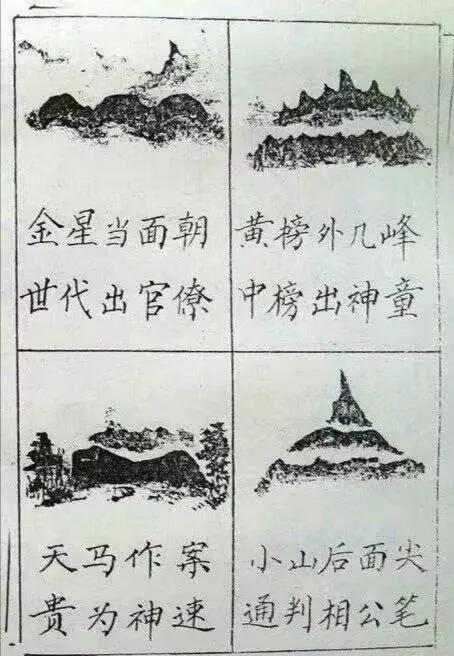 金星当面朝
世代出官僚
黄榜外几峰
中榜出神童
天马作案
贵为神速
小山后面尖
通判相公笔